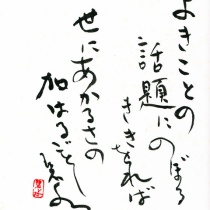 よきことの
話題にのぼる
ききをれば
世にあかるさの
加はるごとし